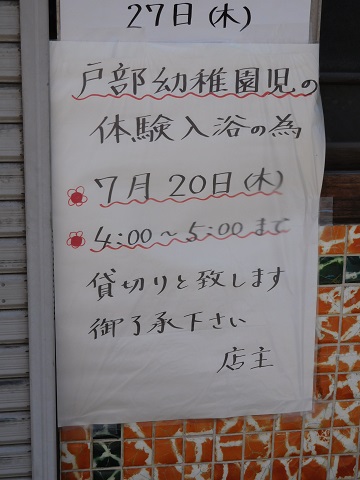 27日(木)
戸部幼稚園児の
体験入浴の為
7月20日(木)
4:00〜5:00まで
貸切りと致します
御了承下さい
店主